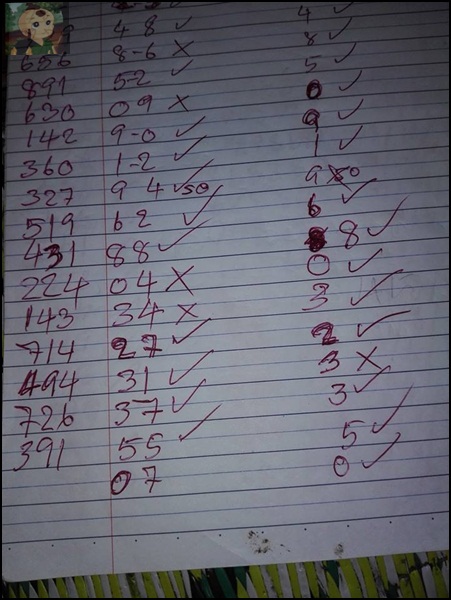 48 ✓ 4 ✓
656 8-6 X 8 ✓
891 52 ✓ 5 ✓
630 09 X 0 ✓
142 9-0 ✓ 9 ✓
360 1-2 ✓ 1 ✓
327 94 ✓ 50 9 X 50
519 62 ✓ 6 ✓
431 88 ✓ 8 ✓
224 04 X 0 ✓
143 34 X 3 ✓
714 27 ✓ 2 ✓
494 31 ✓ 3 X
726 37 ✓ 3 ✓
391 55 ✓ 5 ✓
07 0 ✓